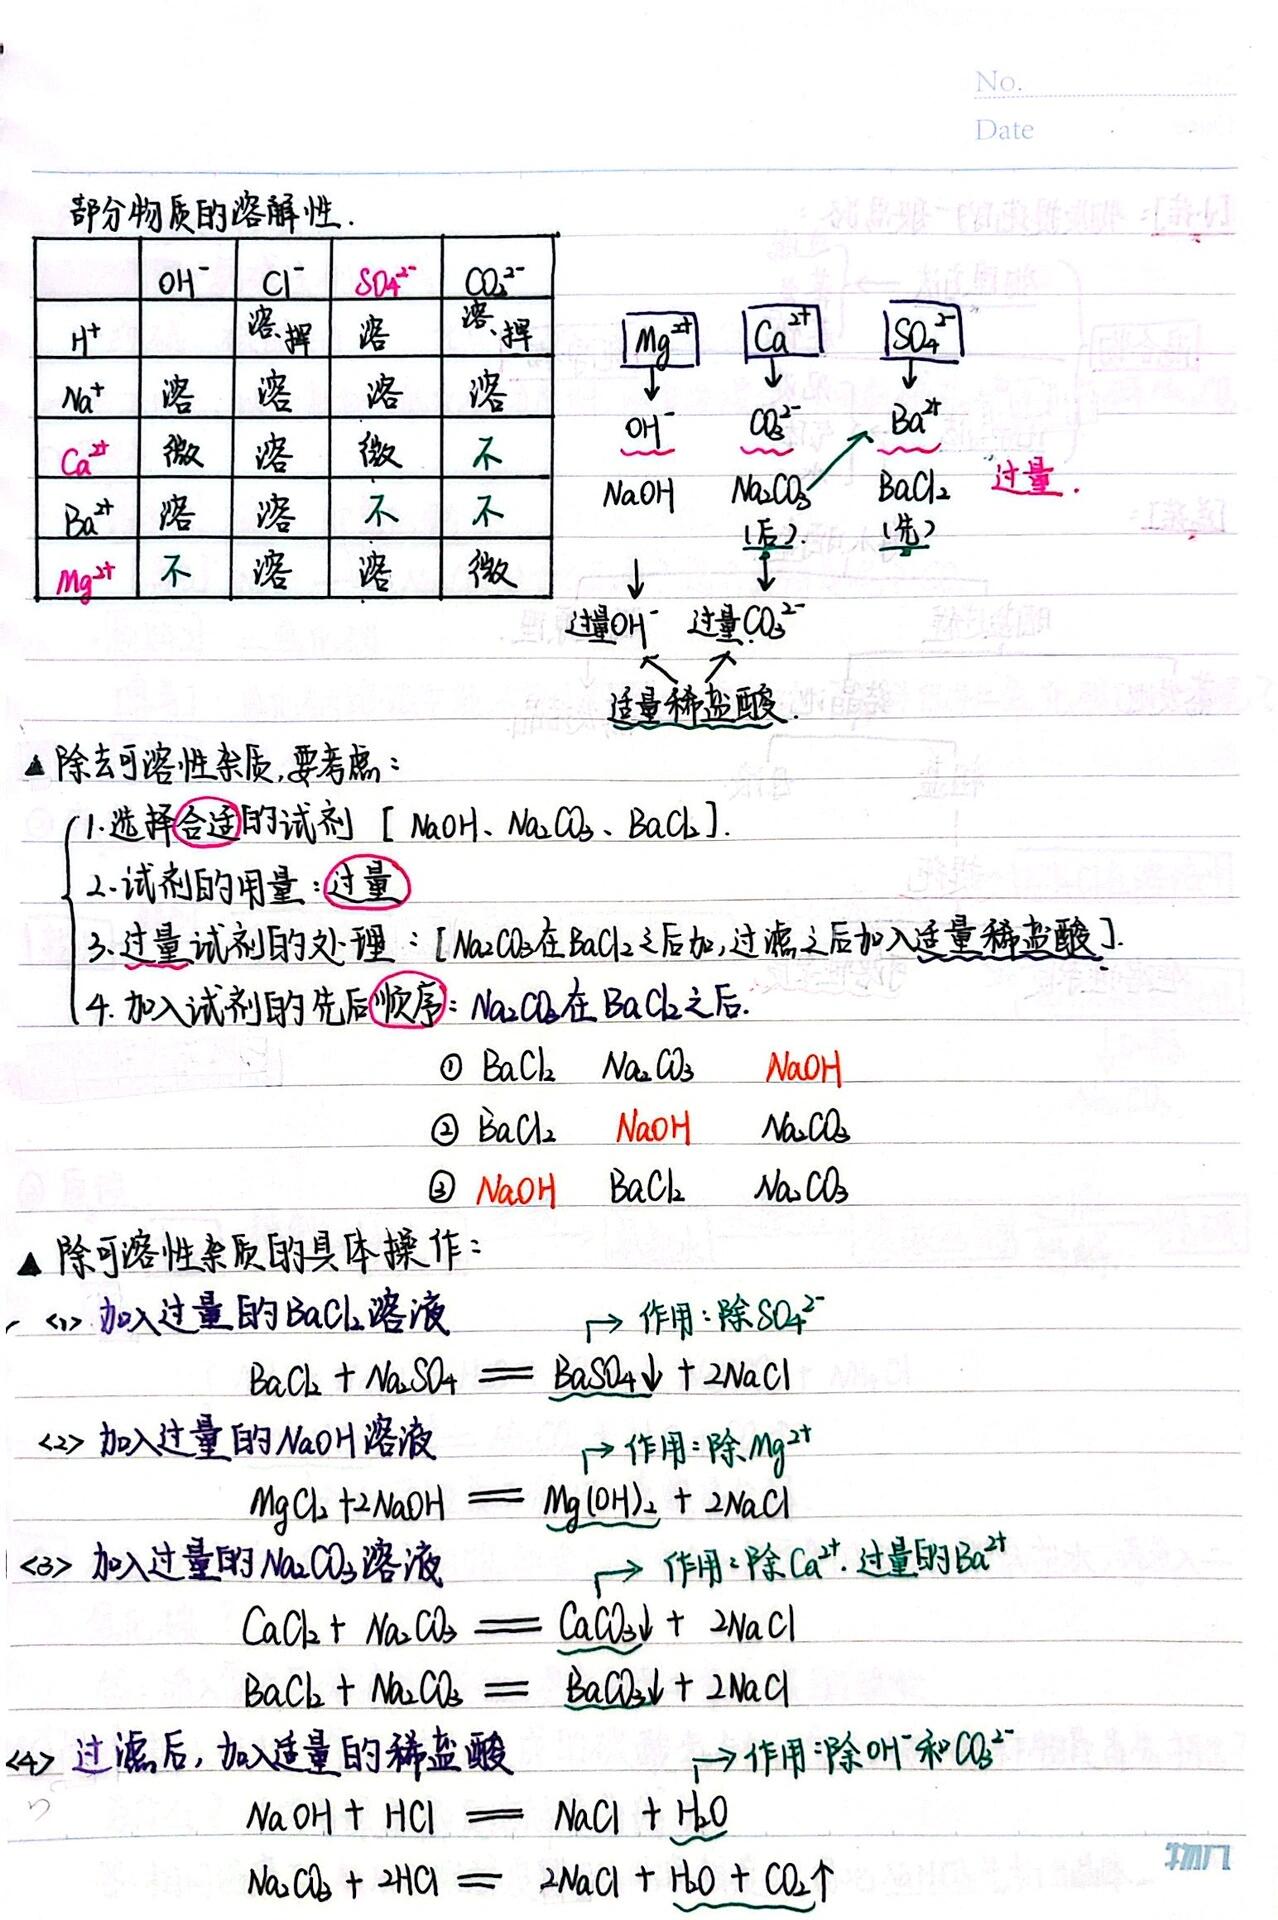 No.
Date
部分物质的溶解性.
OH⁻ Cl⁻ SO₄²⁻ CO₃²⁻
H⁺ 溶.挥 溶 溶.挥
Na⁺ 溶 溶 溶 溶
Ca²⁺ 微 溶 微 不
Ba²⁺ 溶 溶 不 不
Mg²⁺ 不 溶 溶 微
Mg²⁺ Ca²⁺ SO₄²⁻
↓ ↓ ↓
OH⁻ CO₃²⁻ Ba²⁺
NaOH Na₂CO₃ BaCl₂ 过量.
(后). (先)
↓ ↓
过量OH⁻ 过量CO₃²⁻
适量稀盐酸.
▲ 除去可溶性杂质,要考虑:
1.选择合适的试剂 [NaOH、Na₂CO₃、BaCl₂].
2.试剂的用量:过量
3.过量试剂的处理:[Na₂CO₃在BaCl₂之后加,过滤之后加入适量稀盐酸].
4.加入试剂的先后顺序:Na₂CO₃在BaCl₂之后.
① BaCl₂ Na₂CO₃ NaOH
② BaCl₂ NaOH Na₂CO₃
③ NaOH BaCl₂ Na₂CO₃
▲ 除可溶性杂质的具体操作:
<1> 加入过量的BaCl₂溶液 → 作用:除SO₄²⁻
BaCl₂ + Na₂SO₄ == BaSO₄↓ + 2NaCl
<2> 加入过量的NaOH溶液 → 作用:除Mg²⁺
MgCl₂ + 2NaOH == Mg(OH)₂ + 2NaCl
<3> 加入过量的Na₂CO₃溶液 → 作用:除Ca²⁺.过量的Ba²⁺
CaCl₂ + Na₂CO₃ == CaCO₃↓ + 2NaCl
BaCl₂ + Na₂CO₃ == BaCO₃↓ + 2NaCl
<4> 过滤后,加入适量的稀盐酸 → 作用:除OH⁻和CO₃²⁻
NaOH + HCl == NaCl + H₂O
Na₂CO₃ + 2HCl == 2NaCl + H₂O + CO₂↑